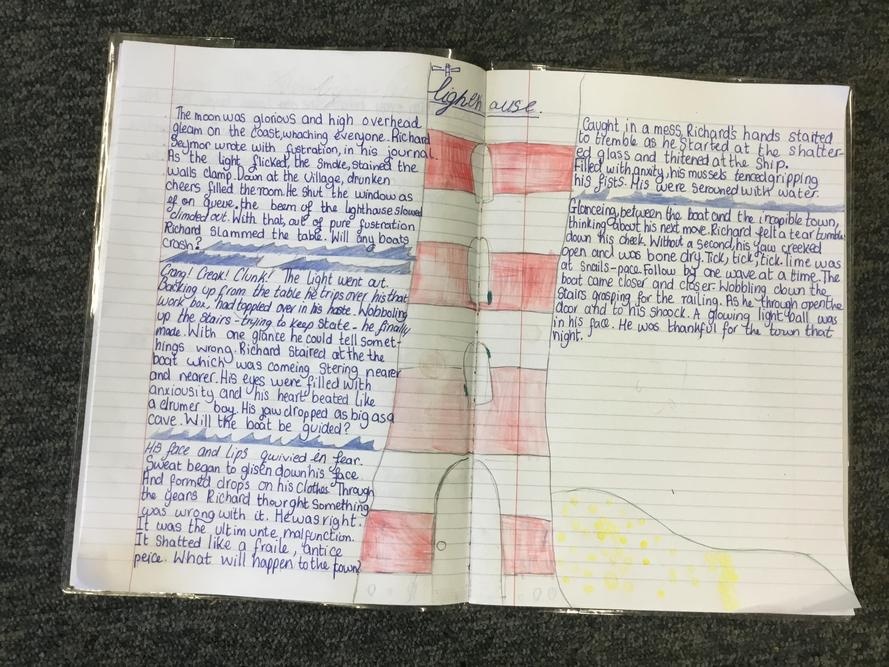 lighthouse.
The moon was glorious and high overhead
gleam on the coast, whaching everyone. Richard
Seajmor wrote with fustration, in his journal.
As the light flicked, the smoke, stained the
walls clamp. Down at the village, drunken
cheers filled the room. He shut the window as
if on queue, the beem of the lighthouse slowed
climded out. With that, out of pure fustration
Richard slammed the table. Will any boats
crash?
Crang! Creak! Clunk! The Light went out.
Backing up from the table he trips over his that
work box, had toppled over in his haste. Wobboling
up the stairs - trying to keep state - he finally
made. With one glance he could tell somet-
hings wrong. Richard Staired at the the
boat which was comeing Stering nearer
and nearer. His eyes were filled with
anxiousity, and his heart beated like
a drumer boy. His jaw dropped as big as a
cave. Will the boat be guided?
His face and lips quivied in fear.
Sweat began to glisen down his face
And formed drops on his clothes. Through
the years Richard thourght something
was wrong with it. He was right.
It was the ultim unte malfunction.
It shatted like a fraile, antice
peice. What will happen to the town?
Caught in a mess, Richard's hands started
to tremble as he started at the shatter-
ed glass and thitened at the ship.
Filled with anxity, his mussels tenced gripping
his fists. His were serouned with water.
Glanceing between the boat and the incapible town,
thinking about his next move. Richard felt a tear tumble
down his cheek. Without a second, his yaw creeked
open and was bone dry. Tick, tick, tick. Time was
at snails-pace. Follow by one wave at a time. The
boat came closer and closer. Wobbling down the
stairs grasping for the railing. As he through open the
door and to his shoock. A glowing light ball was
in his face. He was thankful for the town that
night.